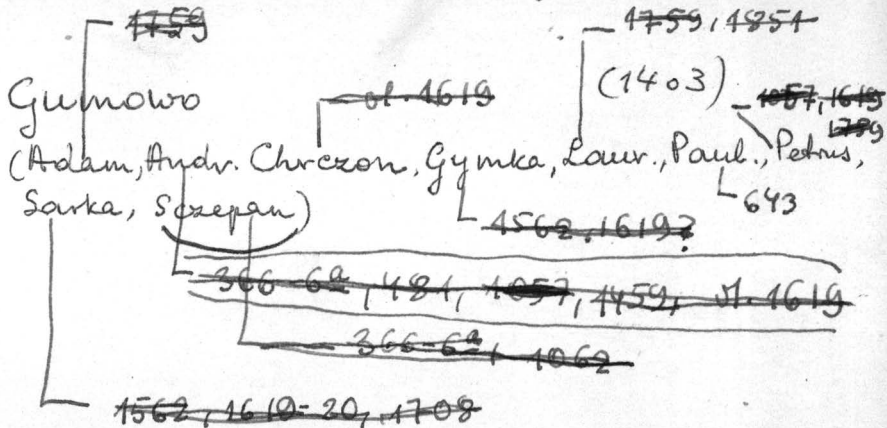 1759
1759, 1851
Gumowo
ol. 1619
(1403)
1057, 1619
1789
(Adam, Andr. Chrczon, Gymka, Laur., Paul., Petrus,
Sarka, Szczepan)
643
1562, 1619?
366-6a, 1481, 1057, 1459, ol. 1619
366-6a, 1062
1562, 1619-20, 1708